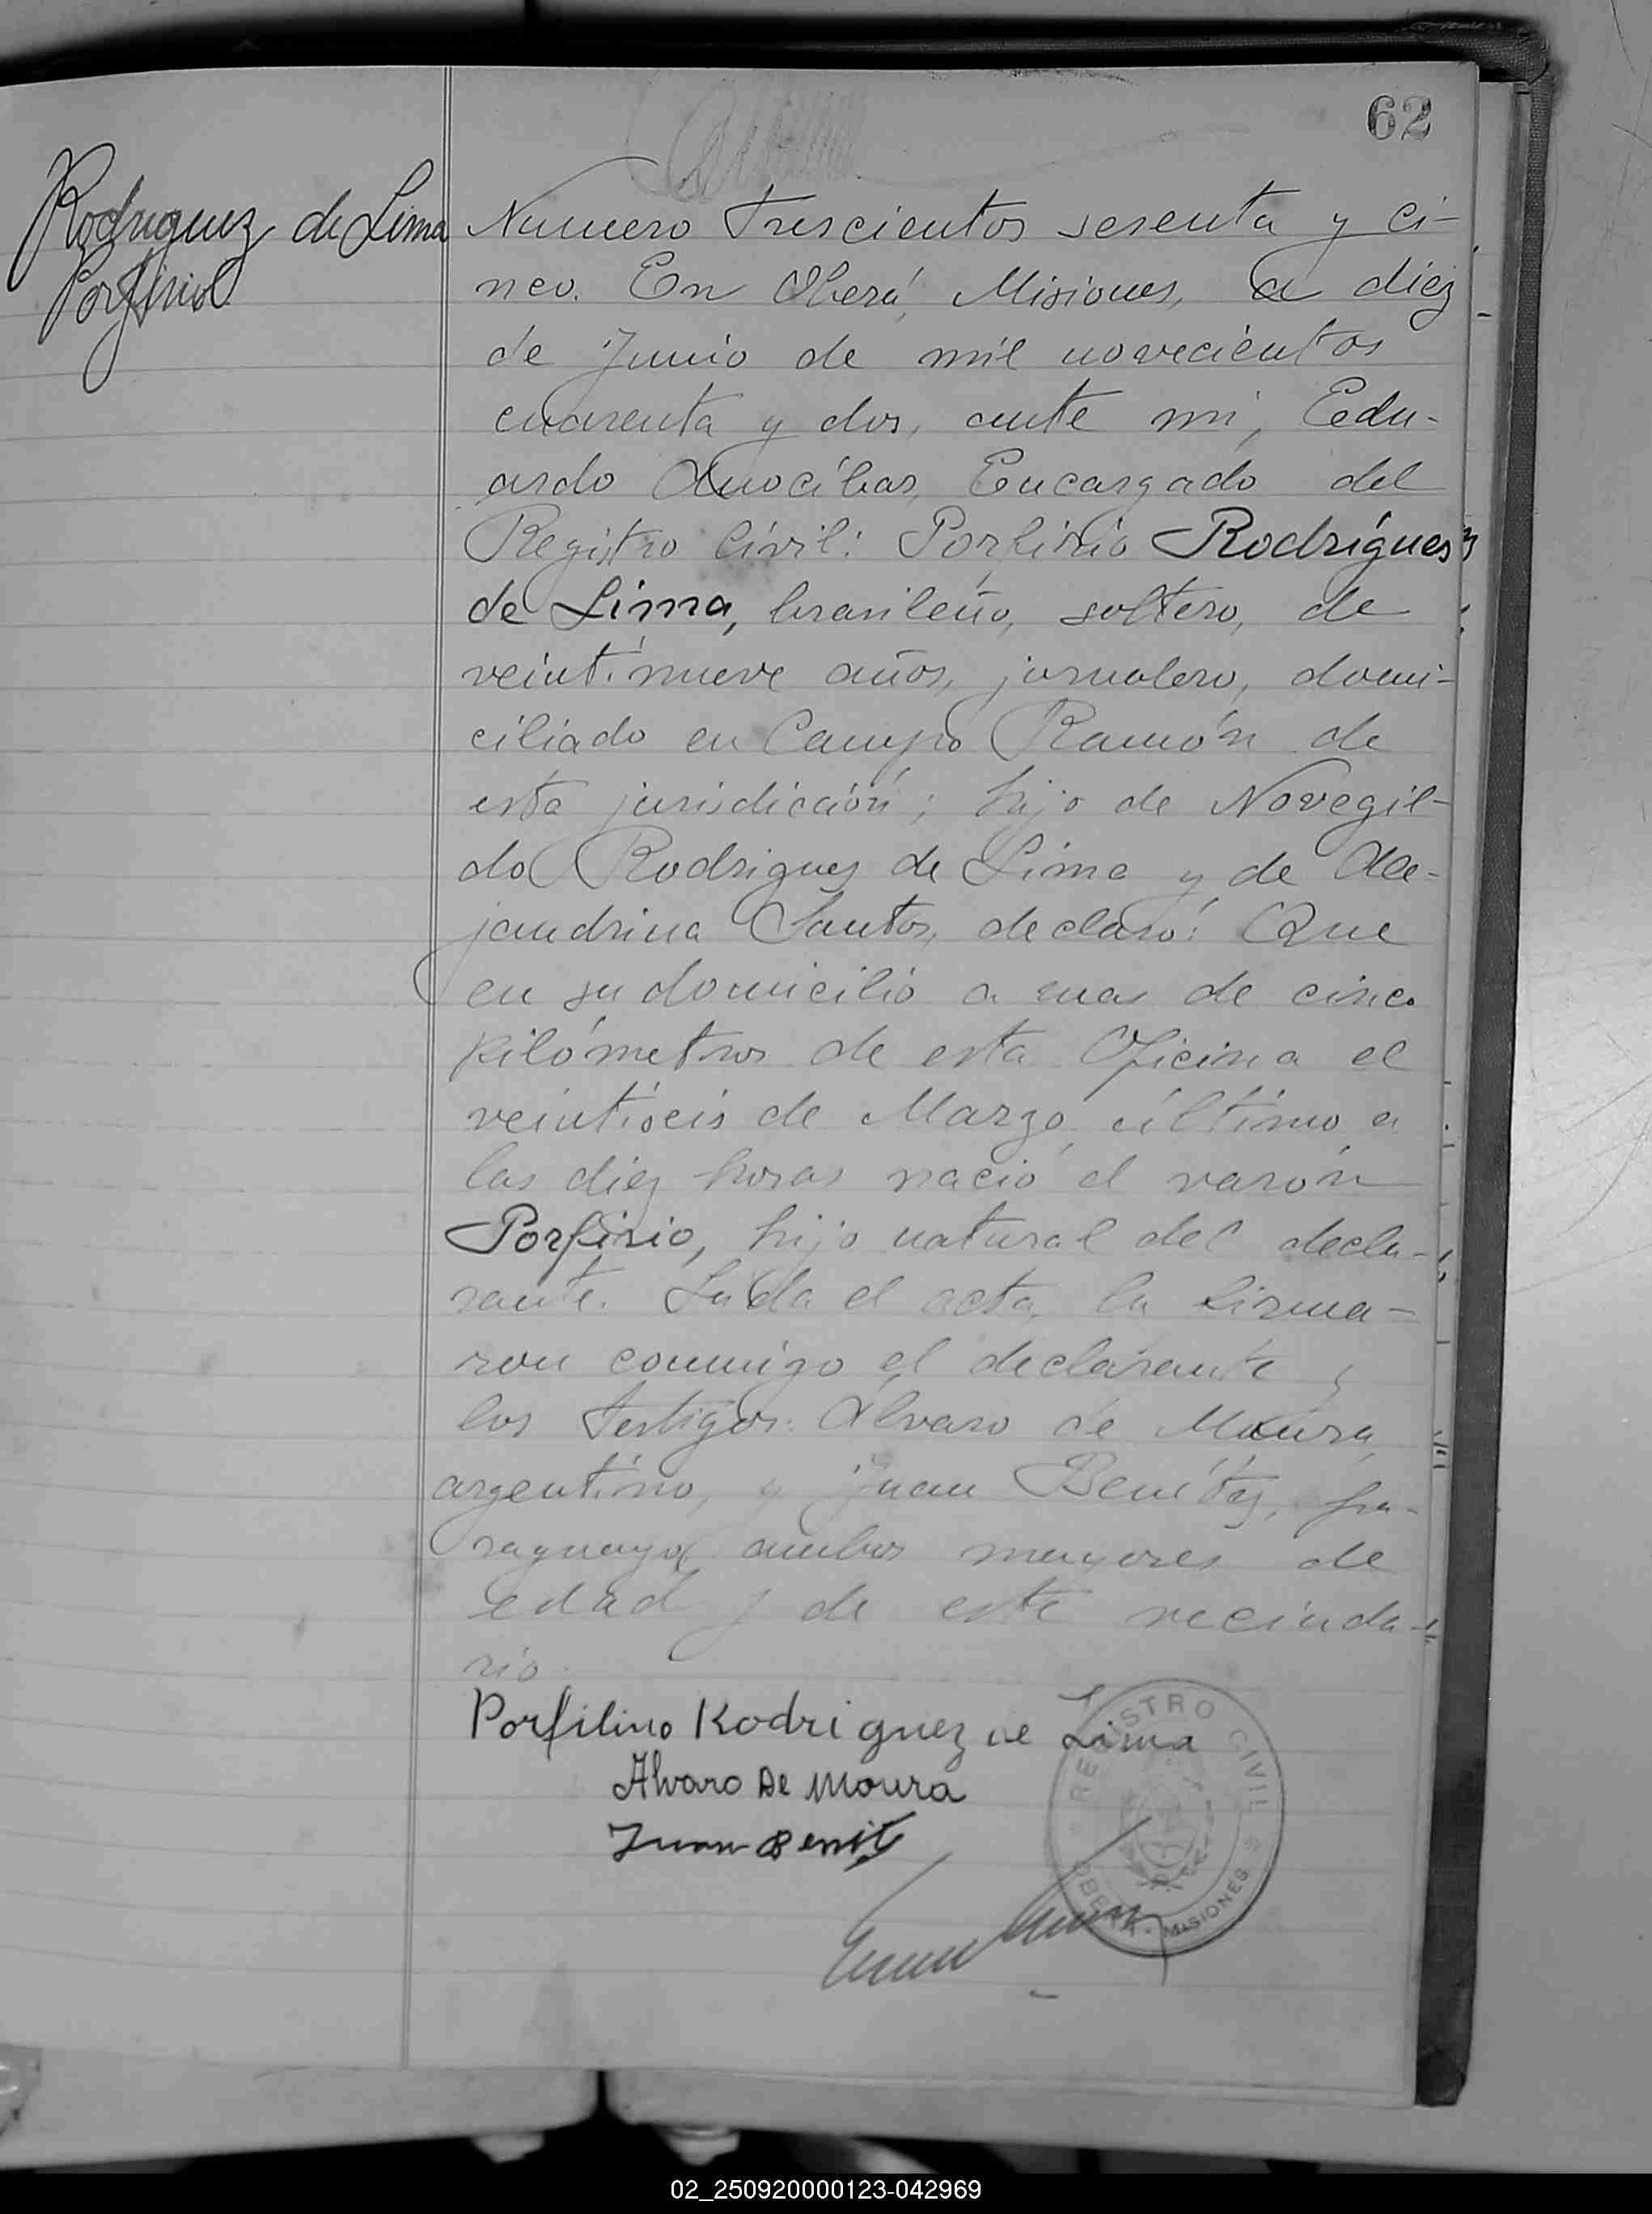 62
Rodriguez de Lima
Porfirio
Numero trescientos sesenta y ci-
nco. En Oberá, Misiones, a diez
de Junio de mil novecientos
cuarenta y dos, ante mi, Edu-
ardo Encargado del
Registro Civil: Porfirio Rodrígues
de Lima, brasileño, soltero, de
veintinueve años, jornalero, domi-
ciliado en Campo Ramón de
esta jurisdicción; hijo de Novegil-
do Rodrigues de Lima y de Ale-
jandrina Santos, declaró: Que
en su domicilio a mas de cinco
kilómetros de esta Oficina el
veintiseis de Marzo último a
las diez horas nació el varón
Porfirio, hijo natural del decla-
rante. Leída el acta, la firma-
ron conmigo el declarante y
los testigos: Alvaro de Moura,
argentino, y Juan Benítez, pa-
raguayo, ambos mayores de
edad y de este vecinda-
rio.
Porfilino Rodriguez de Lima
Alvaro De Moura
Juan Benit
REGISTRO CIVIL
OBERA - MISIONES
02_250920000123-042969